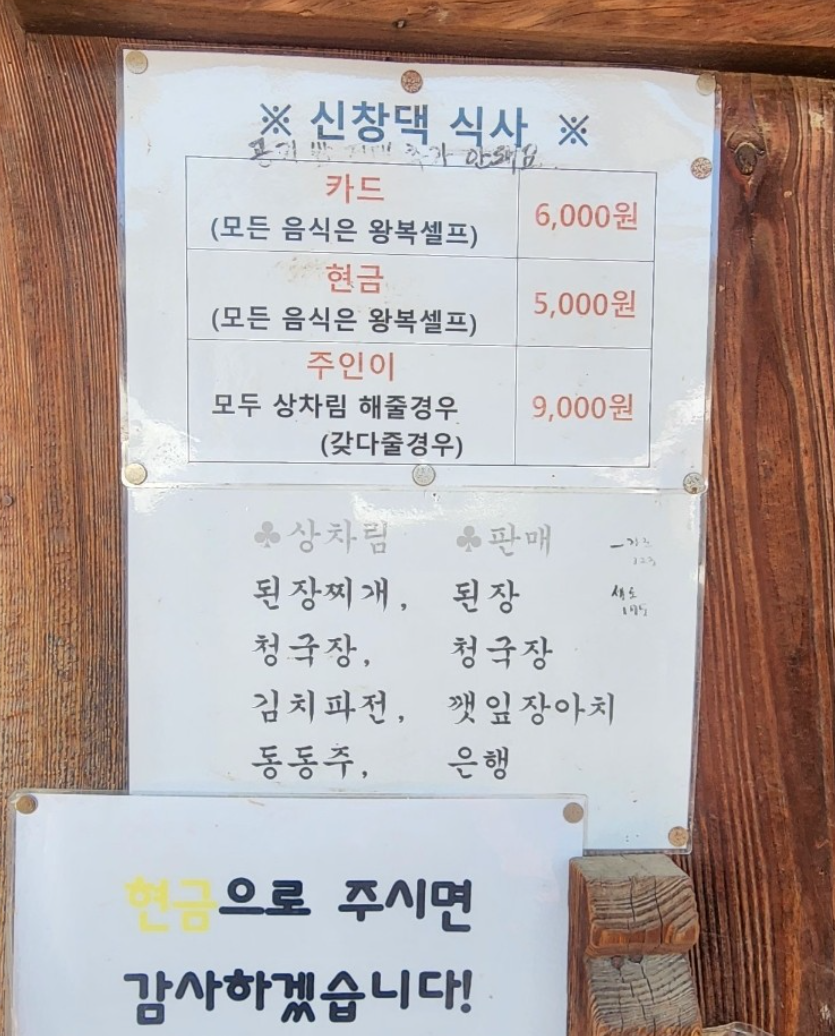 ※ 신창댁 식사 ※
추가 안돼요
카드
(모든 음식은 왕복셀프)
6,000원
현금
(모든 음식은 왕복셀프)
5,000원
주인이
모두 상차림 해줄경우
(갖다줄경우)
9,000원
♣상차림 ♣판매
된장찌개, 된장
청국장, 청국장
김치파전, 깻잎장아치
동동주, 은행
현금으로 주시면
감사하겠습니다!